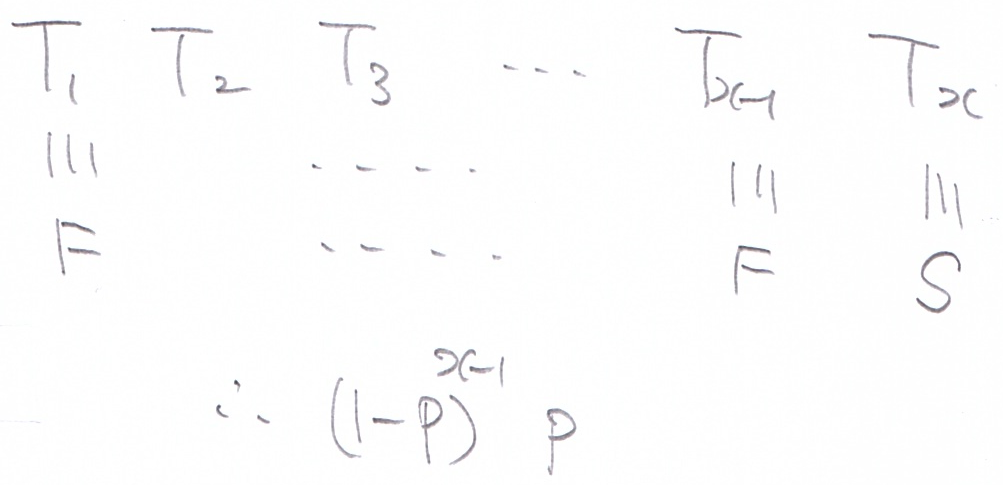 T₁ T₂ T₃ --- Tₓ₋₁ Tₓ
||| - - - - ||| |||
F - - - - F S
∴ (1-p)ˣ⁻¹ p